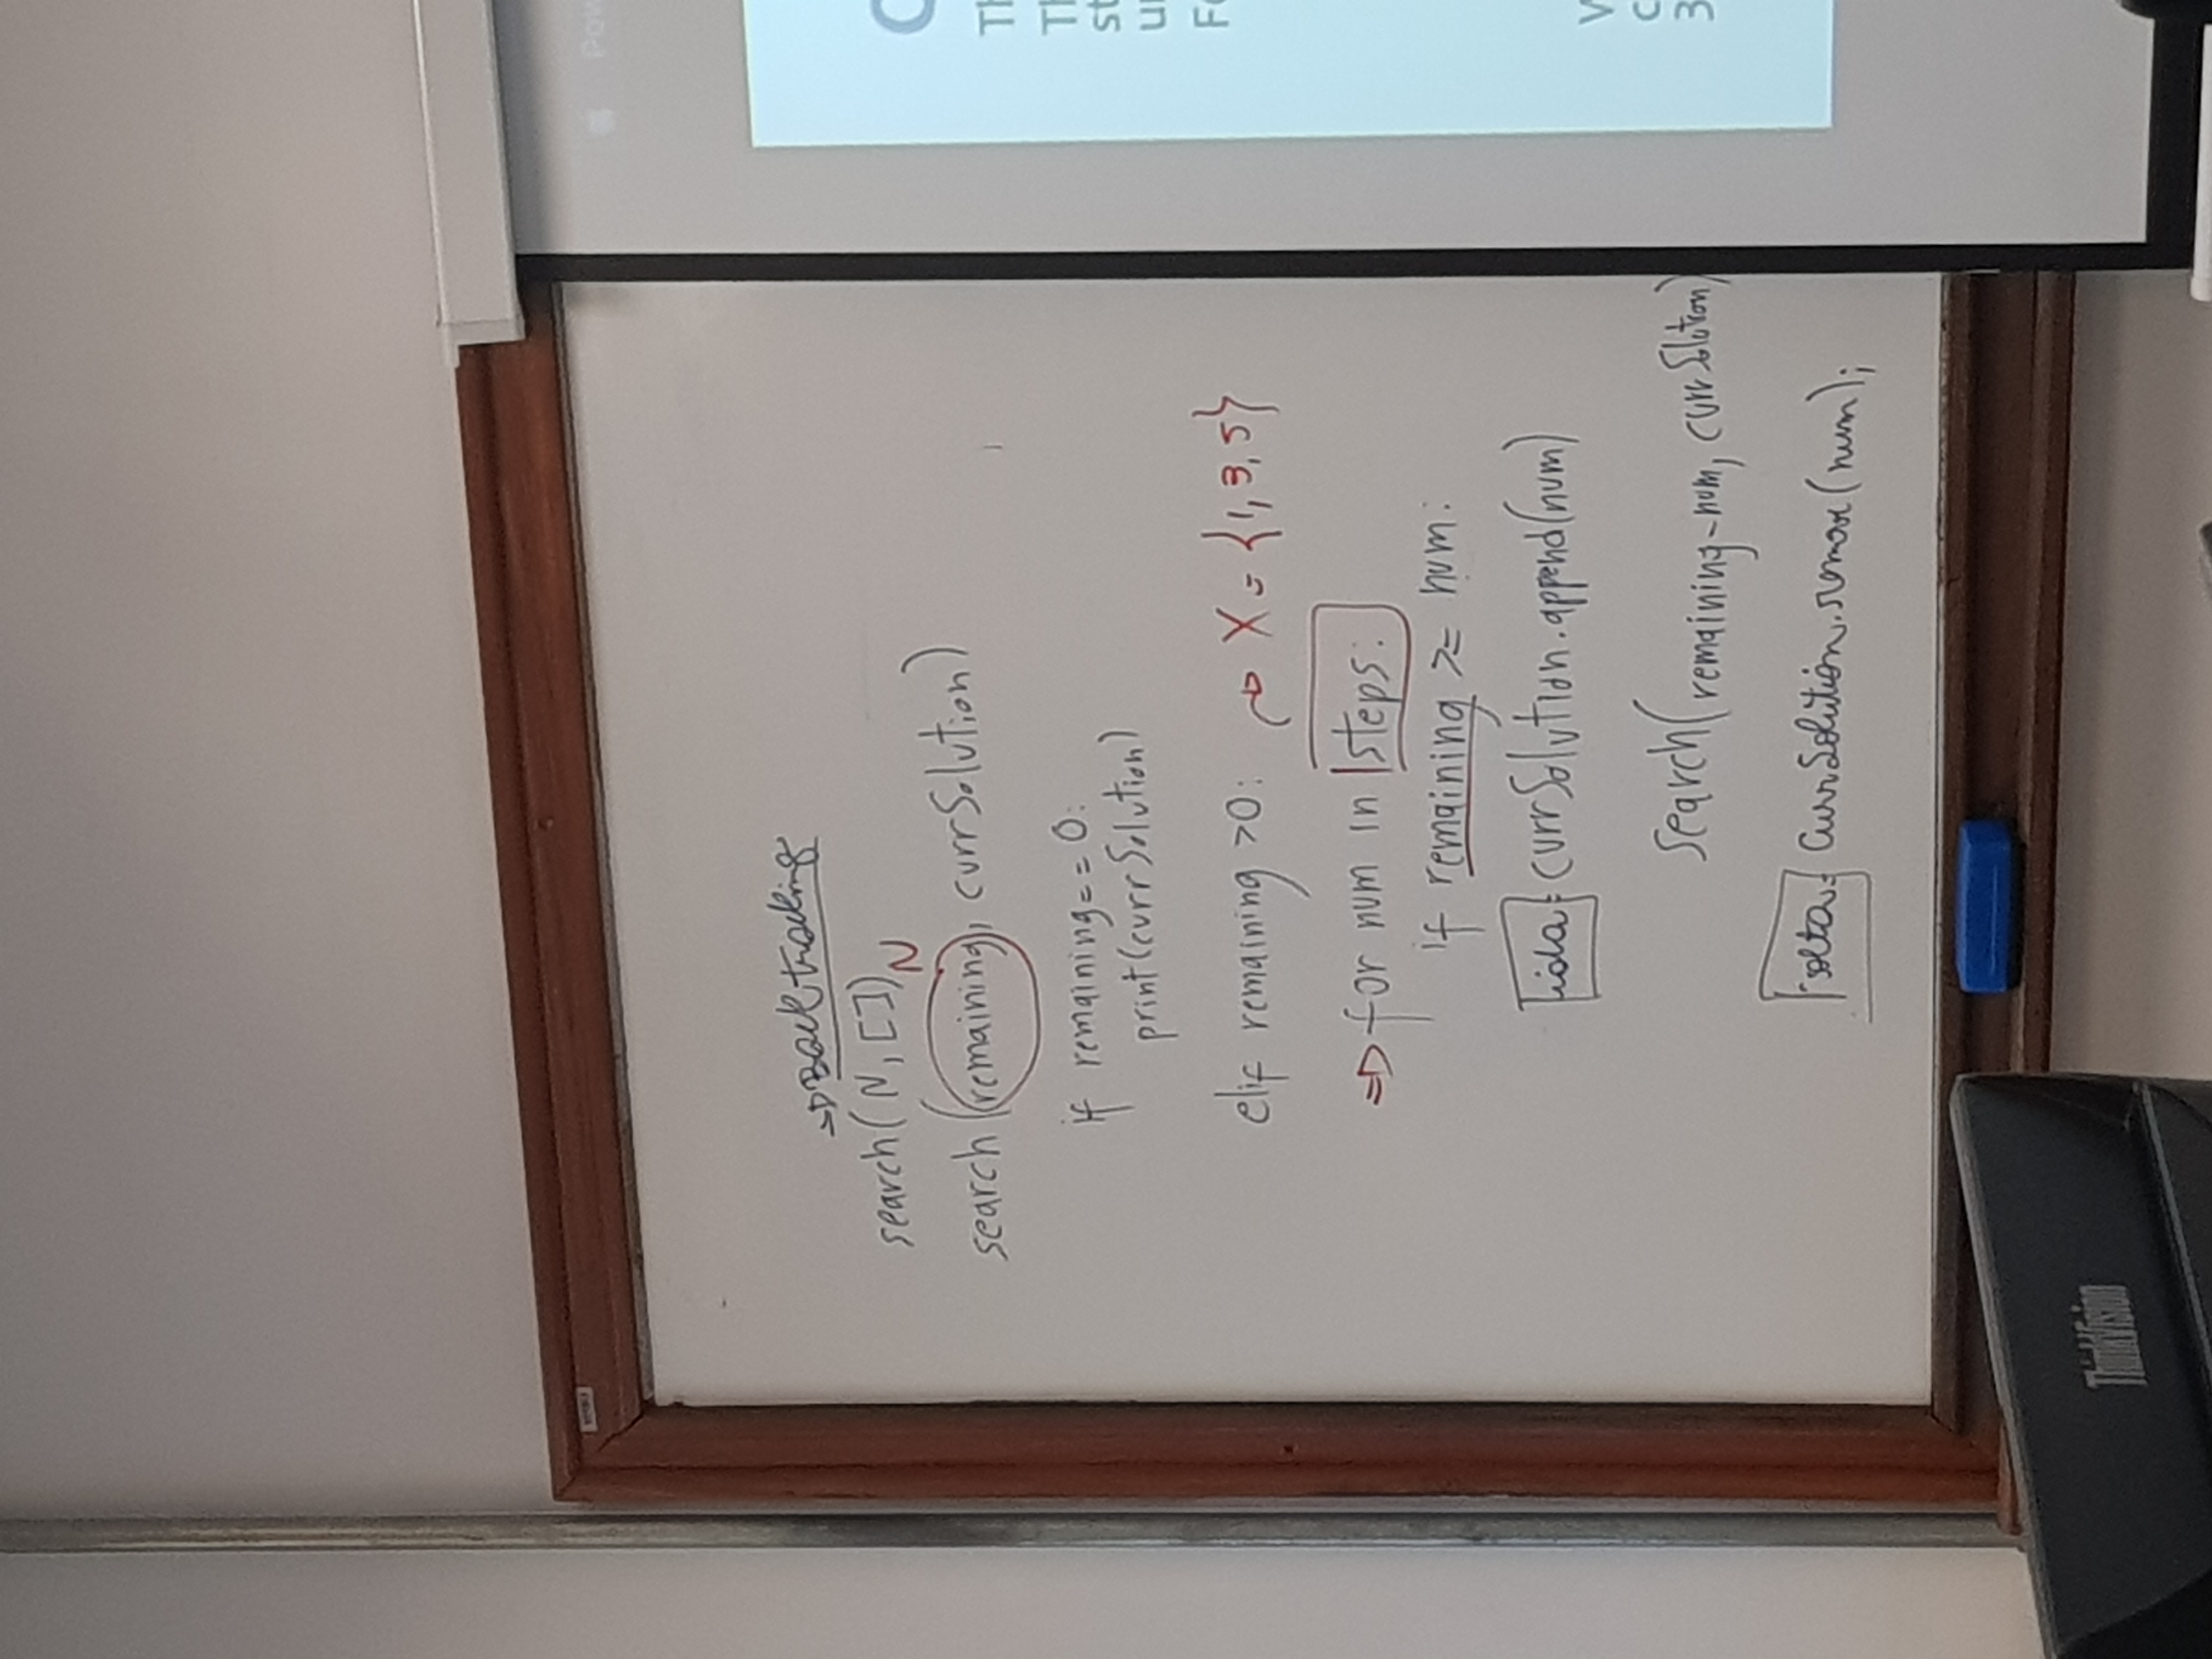 => Backtracking
search(N, [])
N
search(remaining, currSolution)
if remaining == 0:
print(currSolution)
elif remaining >0:
X = {1, 3, 5}
=> for num in steps:
if remaining >= num:
ida: currSolution.append(num)
search(remaining-num, currSolution)
volta: currSolution.remove(num);
ThinkVision
Th
Th
st
W
3